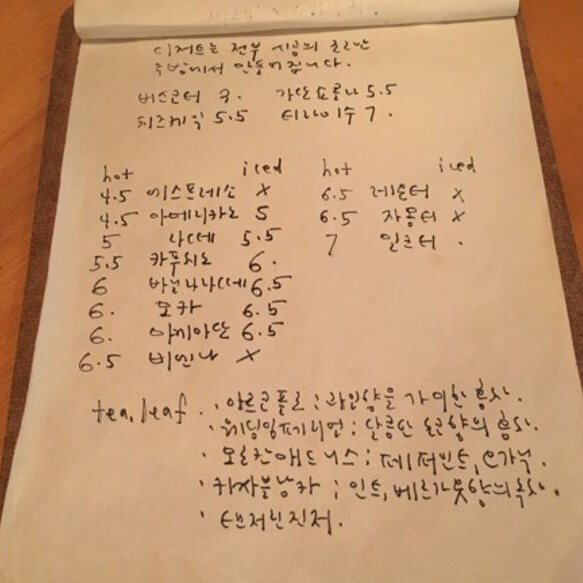 디저트는 전부 시공의 조그만
주방에서 만들어집니다.
버스코터 3. 가또쇼콜라 5.5
치즈케익 5.5 티라미수 7.
hot iced hot iced
4.5 에스프레소 X 6.5 레몬티 X
4.5 아메리카노 5 6.5 자몽티 X
5 라떼 5.5 7 밀크티 .
5.5 카푸치노 6.
6 바닐라라떼 6.5
6. 모카 6.5
6. 마끼아또 6.5
6.5 비엔나 X
tea.leaf . · 마르코폴로 ; 과일향을 가미한 홍차.
· 웨딩임페리얼 ; 달콤한 초코향의 홍차.
· ; 페퍼민트,
· 카사블랑카 ; 민트, 베르가못향의 녹차.
· 탠저린진저.